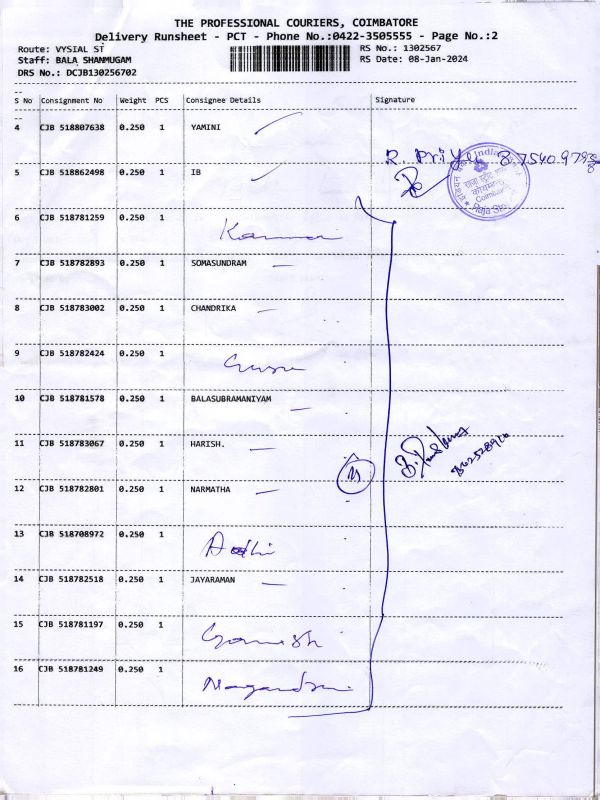 THE PROFESSIONAL COURIERS, COIMBATORE
Delivery Runsheet - PCT - Phone No.:0422-3505555 - Page No.:2
Route: VYSIAL ST RS No.: 1302567
Staff: BALA SHANMUGAM RS Date: 08-Jan-2024
DRS No.: DCJB130256702
S No Consignment No Weight PCS Consignee Details Signature
4 CJB 518807638 0.250 1 YAMINI
R. Priya
5 CJB 518862498 0.250 1 IB
6 CJB 518781259 0.250 1
7 CJB 518782893 0.250 1 SOMASUNDRAM
8 CJB 518783002 0.250 1 CHANDRIKA
9 CJB 518782424 0.250 1
10 CJB 518781578 0.250 1 BALASUBRAMANIYAM
11 CJB 518783067 0.250 1 HARISH.
12 CJB 518782801 0.250 1 NARMATHA
13 CJB 518708972 0.250 1
14 CJB 518782518 0.250 1 JAYARAMAN
15 CJB 518781197 0.250 1 Ganesh
16 CJB 518781249 0.250 1